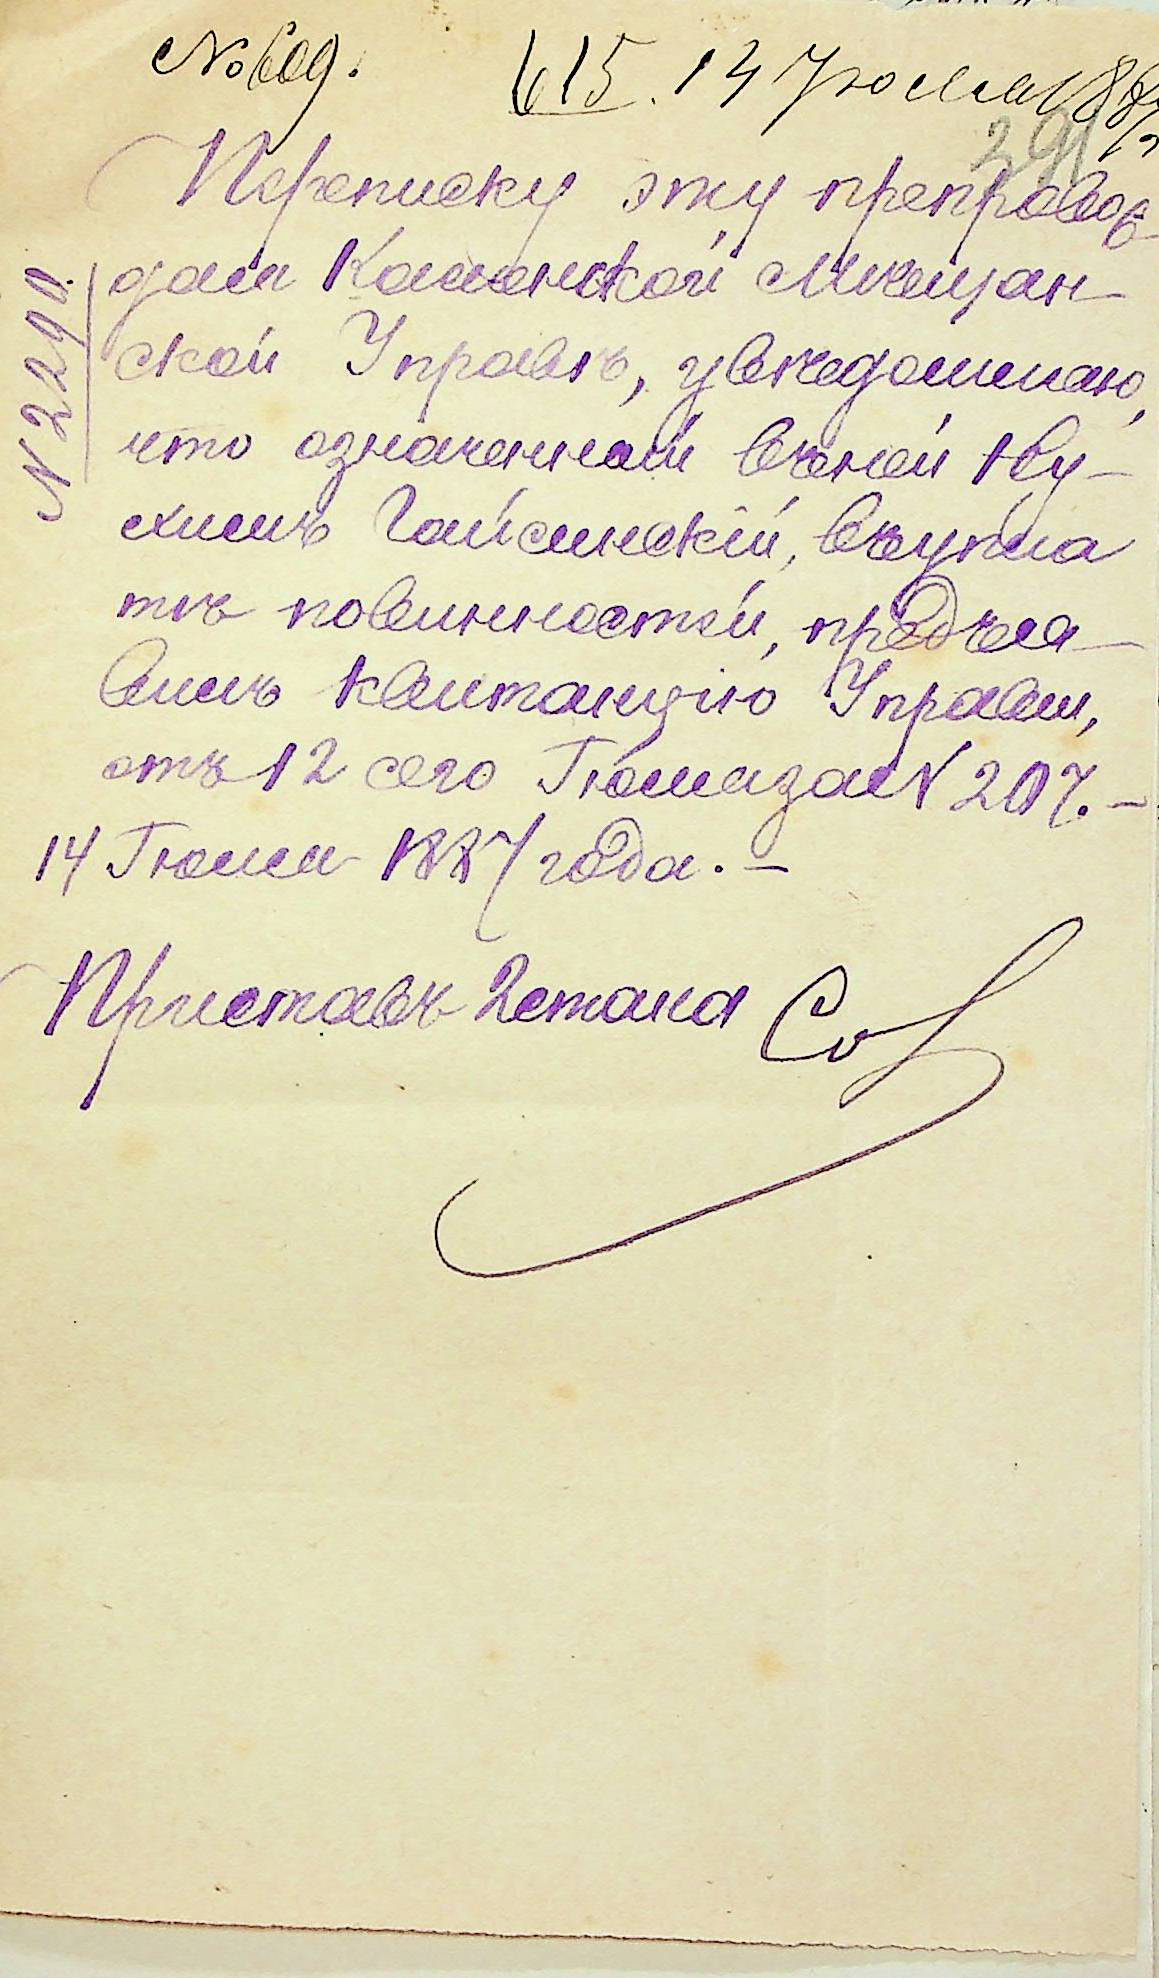 № 609.
615. 14 Июля 1887
291
№ 2290.
Переписку эту препровож
дая Каменской Мѣщан-
ской Управѣ, увѣдомляю,
что означенный въ ней Ну-
химъ Гайсинскій, въ упла
тѣ повинностей, предъя-
вилъ квитанцію Управы,
отъ 12 сего Іюля за № 207. –
14 Іюля 1887 года. –
Приставъ 2 стана